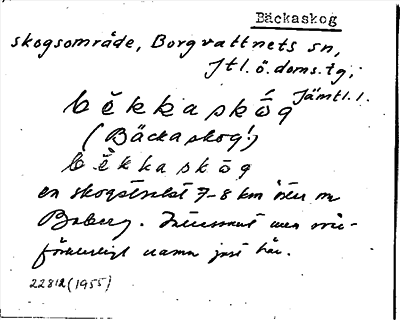 Bäckaskog
skogsområde, Borgvattnets sn,
Jtl. ö. doms. tg;
Jämtl. l.
bĕkkaskóg
(Bäckaskog!)
bĕ̀kkaskōg
en skogstrakt 7-8 km öster om
Boberg. Intressant men oför-
klarligt namn just här.
22812 (1955)